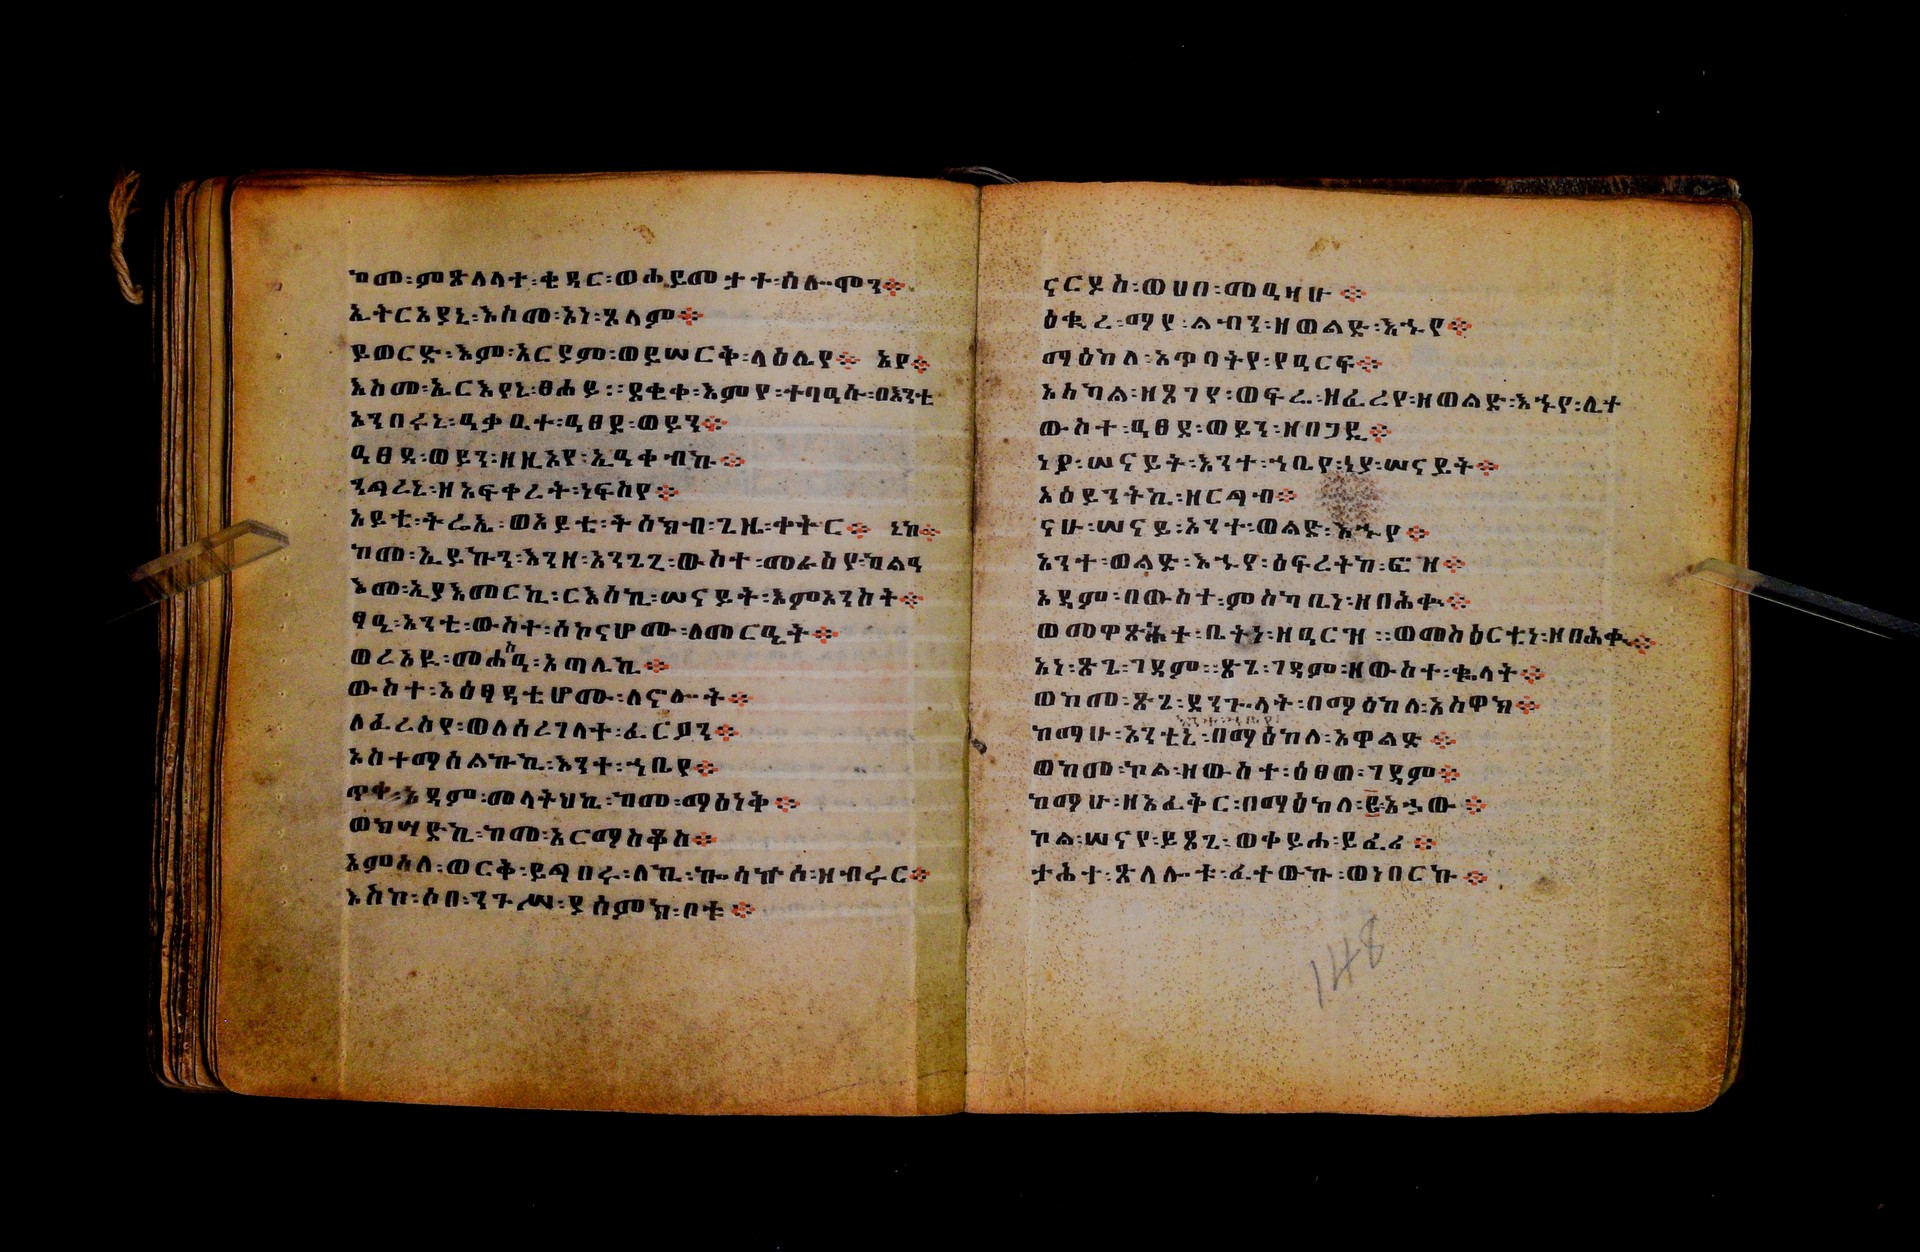 ከመ፡ምጽለላተ፡ቄዳር፡ወሐይመታት፡ሰሎሞን፨
ኢትርአያኒ፡እስመ፡አነ፡ጸላም፨
ይወርድ፡እም፡አርያም፡ወይሠርቅ፡ላዕሌየ፨ እየ፨
እስመ፡ኢርእየኒ፡ፀሐይ፡፡ደቂቀ፡እምየ፡ተባዒሱ፡በእንቲ
አንበሩኒ፡ዓቃቢተ፡ዓፀደ፡ወይን፨
ዓፀደ፡ወይን፡ዘዚአየ፡ኢዓቀብኩ፨
ንግረኒ፡ዘአፍቀረት፡ነፍስየ፨
አይቴ፡ትሬኢ፡ወአይቴ፡ትሰክብ፡ጊዜ፡ቀትር፨ ኒከ፨
ከመ፡ኢይኩን፡እንዘ፡እንጌጊ፡ውስተ፡መራስየ፡ካልዓ
እመ፡ኢያእመርኪ፡ርእሰኪ፡ሠናይት፡እምአንስት፨
ፃዒ፡አንቲ፡ውስተ፡ሰኮናሆሙ፡ለመርዔት፨
ወረእዪ፡መሐስዒ፡አጣሊኪ፨
ውስተ፡አዕፃዳቲሆሙ፡ለኖሎት፨
ለፈረስየ፡ወለሰረገላተ፡ፈርዖን፨
አስተማሰልኩኪ፡አንተ፡ኀቤየ፨
ጥቀ፡አዳም፡መላትህኪ፡ከመ፡ማዕነቅ፨
ወክሣድኪ፡ከመ፡አርማስቆስ፨
አምሳለ፡ወርቅ፡ይገብሩ፡ለኪ፡ኈሰኵሰ፡ዘብሩር፨
እስከ፡ሶበ፡ንጉሥ፡ያሰምክ፡ቦቱ፨
ናርዶስ፡ወሀበ፡መዓዛሁ፨
ዕቊረ፡ማየ፡ልብን፡ዘወልድ፡እኁየ፨
ማዕከለ፡አጥባትየ፡የዓርፍ፨
አስካል፡ዘጸገየ፡ወፍሬ፡ዘፈረየ፡ዘወልድ፡እኁየ፡ሊተ
ውስተ፡ዓፀደ፡ወይን፡ዘበጋዲ፨
ነያ፡ሠናይት፡እንተ፡ኀቤየ፡ነያ፡ሠናይት፨
አዕይንትኪ፡ዘርግብ፨
ናሁ፡ሠናይ፡አንተ፡ወልድ፡እኁየ፨
አንተ፡ወልድ፡እኁየ፡ዕፍረትከ፡ፎዝ፨
አዳም፡በውስተ፡ምስካቢነ፡ዘበሕቁ፨
ወመዋጽሕተ፡ቤትነ፡ዘዓርዝ፡፡ወመሰዕርቲነ፡ዘበሕቁ፨
አነ፡ጽጌ፡ገዳም፡፡ጽጌ፡ገዳም፡ዘውስተ፡ቈላት፨
ወከመ፡ጽጌ፡ደንጉላት፡በማዕከለ፡አስዋክ፨
ከማሁ፡አንቲኒ፡በማዕከለ፡አዋልድ፨
ወከመ፡ኮል፡ዘውስተ፡ዕፀወ፡ገዳም፨
ከማሁ፡ዘአፈቅር፡በማዕከለ፡ይእኅው፨
ኮል፡ሠናየ፡ይጸጊ፡ወቀይሐ፡ይፈሪ፨
ታሕተ፡ጽላሎቱ፡ፈተውኩ፡ወነበርኩ፨
148